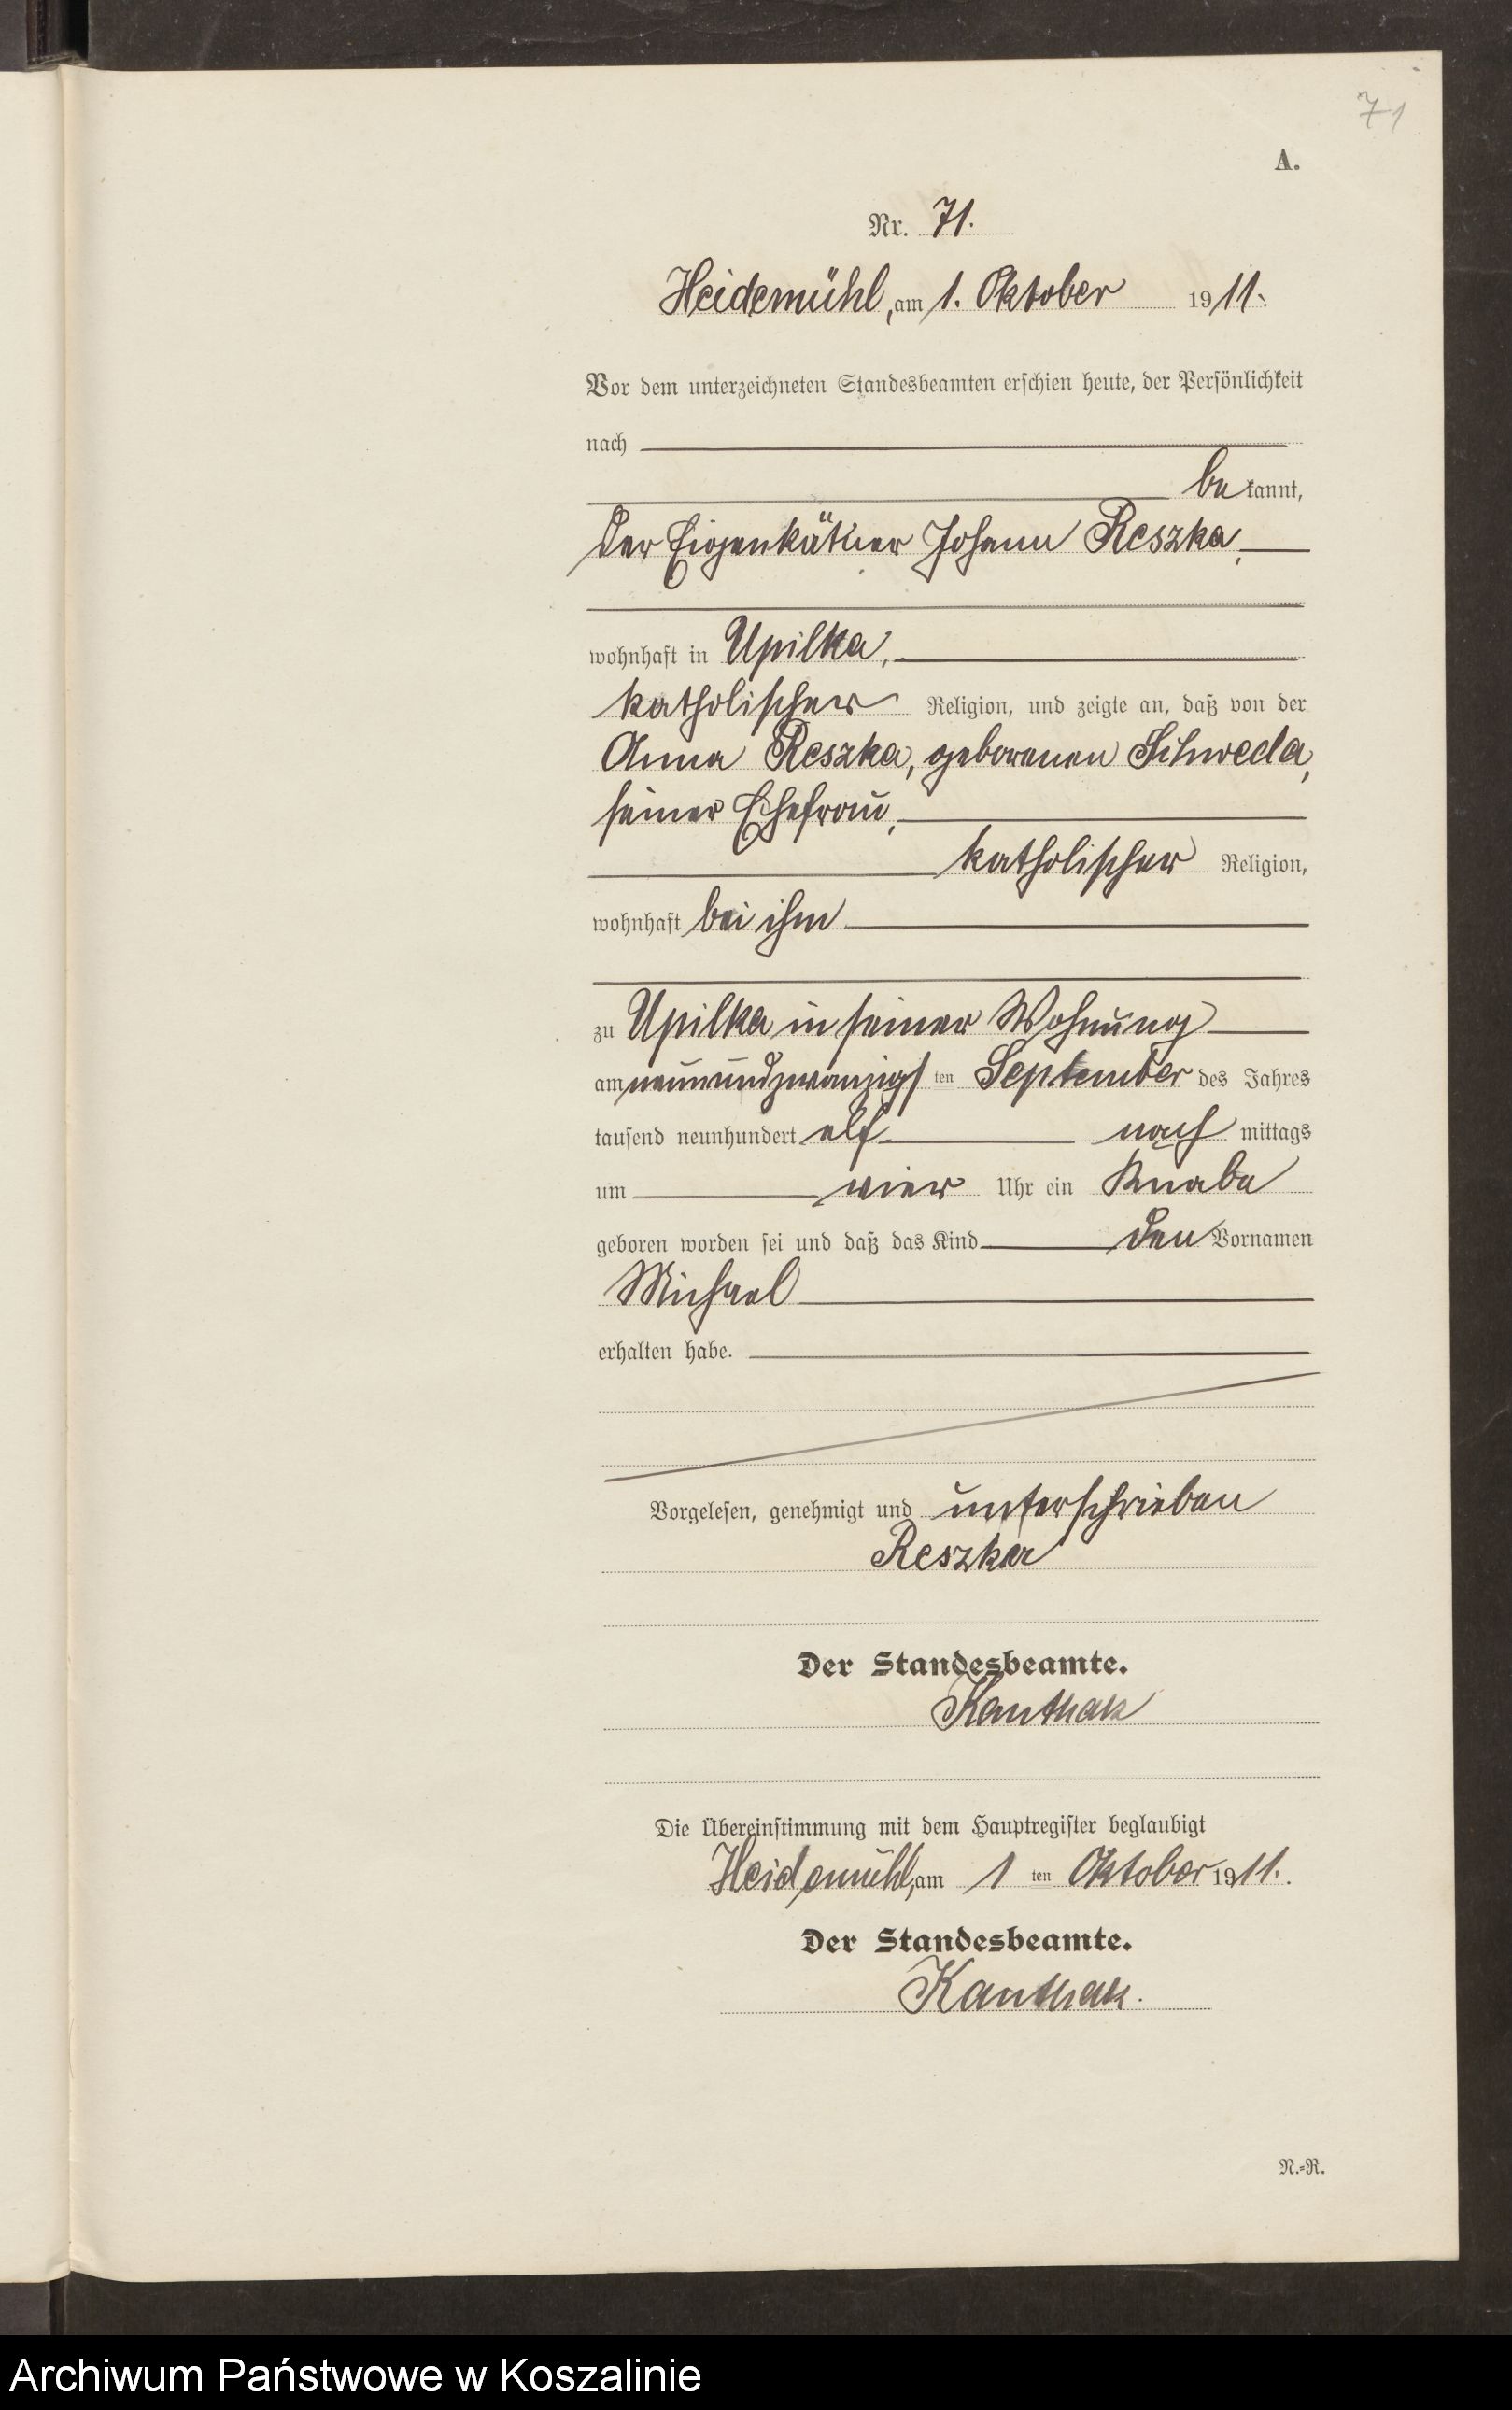 71
A.
Nr. 71.
Heidemühl, am 1. Oktober 1911.
Vor dem unterzeichneten Standesbeamten erschien heute, der Persönlichkeit
nach
be kannt,
der Eigenkätner Johann Reszka,
wohnhaft in Upilka,
katholischer Religion, und zeigte an, daß von der
Anna Reszka, geborenen Schweda,
seiner Ehefrau,
katholischer Religion,
wohnhaft bei ihm
zu Upilka in seiner Wohnung
am neunundzwanzigsten September des Jahres
tausend neunhundert elf nach mittags
um vier Uhr ein Knabe
geboren worden sei und daß das Kind den Vornamen
Michael
erhalten habe.
Vorgelesen, genehmigt und unterschrieben
Reszka
Der Standesbeamte.
Kanthak
Die Übereinstimmung mit dem Hauptregister beglaubigt
Heidemühl, am 1 ten Oktober 1911.
Der Standesbeamte.
Kanthak.
N.=R.
Archiwum Państwowe w Koszalinie